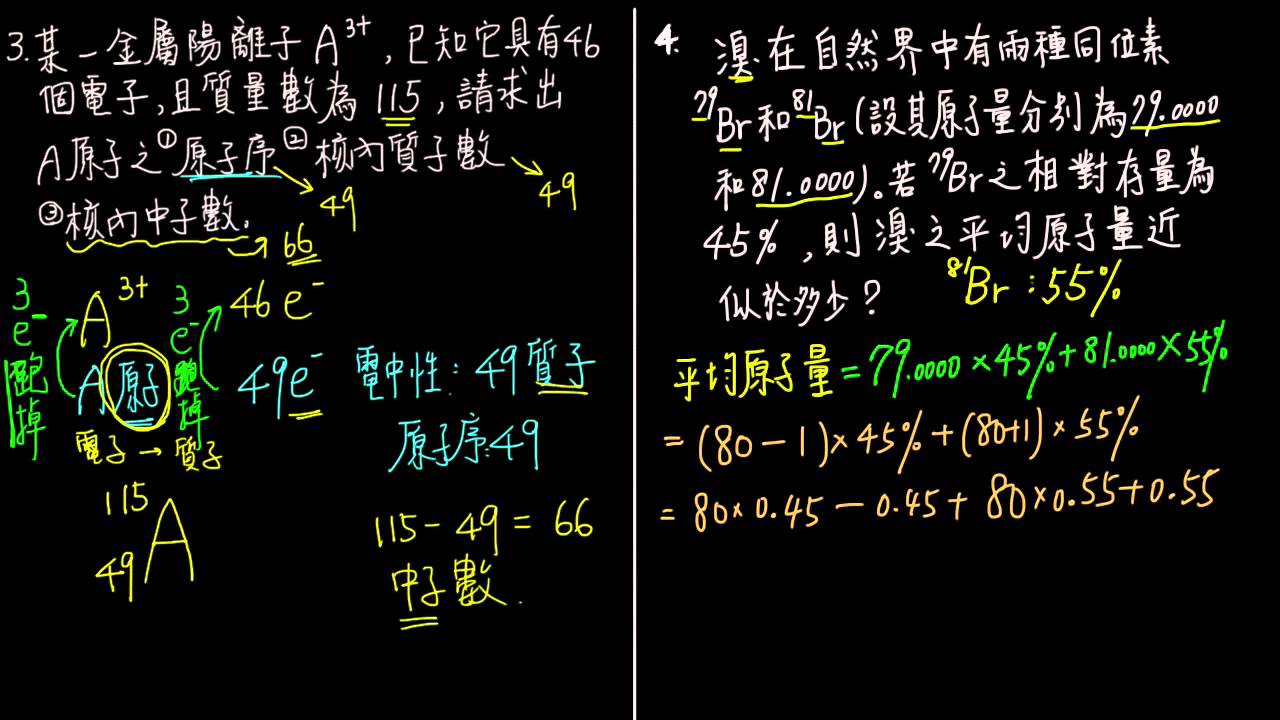 3.某一金屬陽離子A³⁺,已知它具有46
個電子,且質量數為115,請求出
A原子之①原子序②核內質子數
③核內中子數.
49
49
66
3 e⁻ 跑掉
A³⁺
3 e⁻ 跑掉
46e⁻
A原子
49e⁻
電中性:49質子
電子→質子
原子序:49
115
49 A
115-49=66
中子數.
4. 溴在自然界中有兩種同位素
⁷⁹Br和⁸¹Br(設其原子量分別為79.0000
和81.0000)。若⁷⁹Br之相對存量為
45%,則溴之平均原子量近
似於多少?
⁸¹Br:55%
平均原子量=79.0000×45%+81.0000×55%
=(80-1)×45%+(80+1)×55%
=80×0.45-0.45+80×0.55+0.55